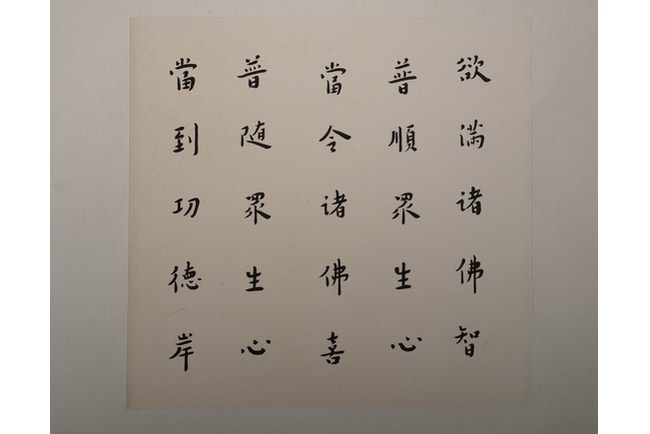 欲满诸佛智
普順眾生心
當令诸佛喜
普随眾生心
當到功德岸